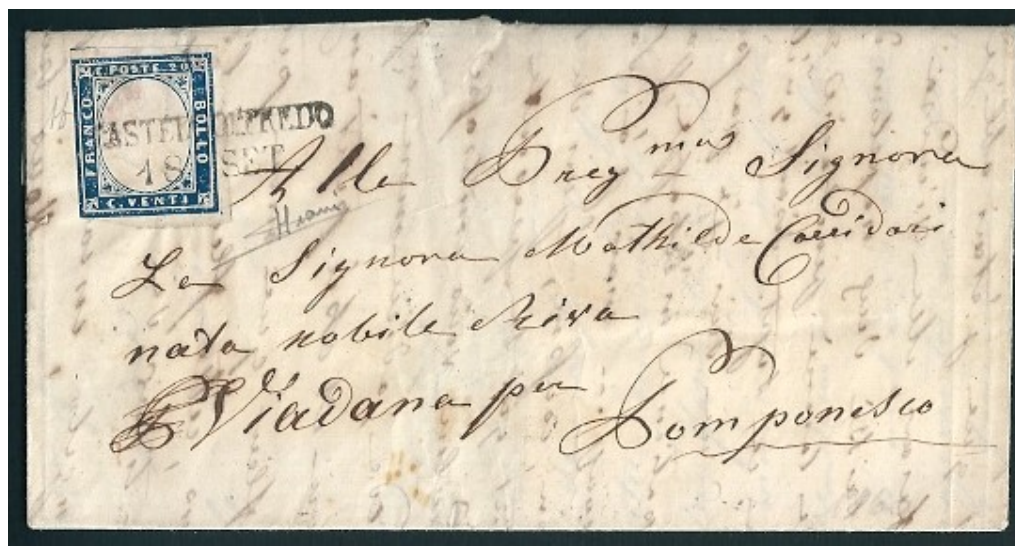 C. POSTE 20
FRANCO
BOLLO
C. VENTI
CASTEL GOFFREDO
18 SET
Alla Preg.ma Signora
La Signora Mathilde Corridori
nata nobile Riva
Viadana per Pomponesco